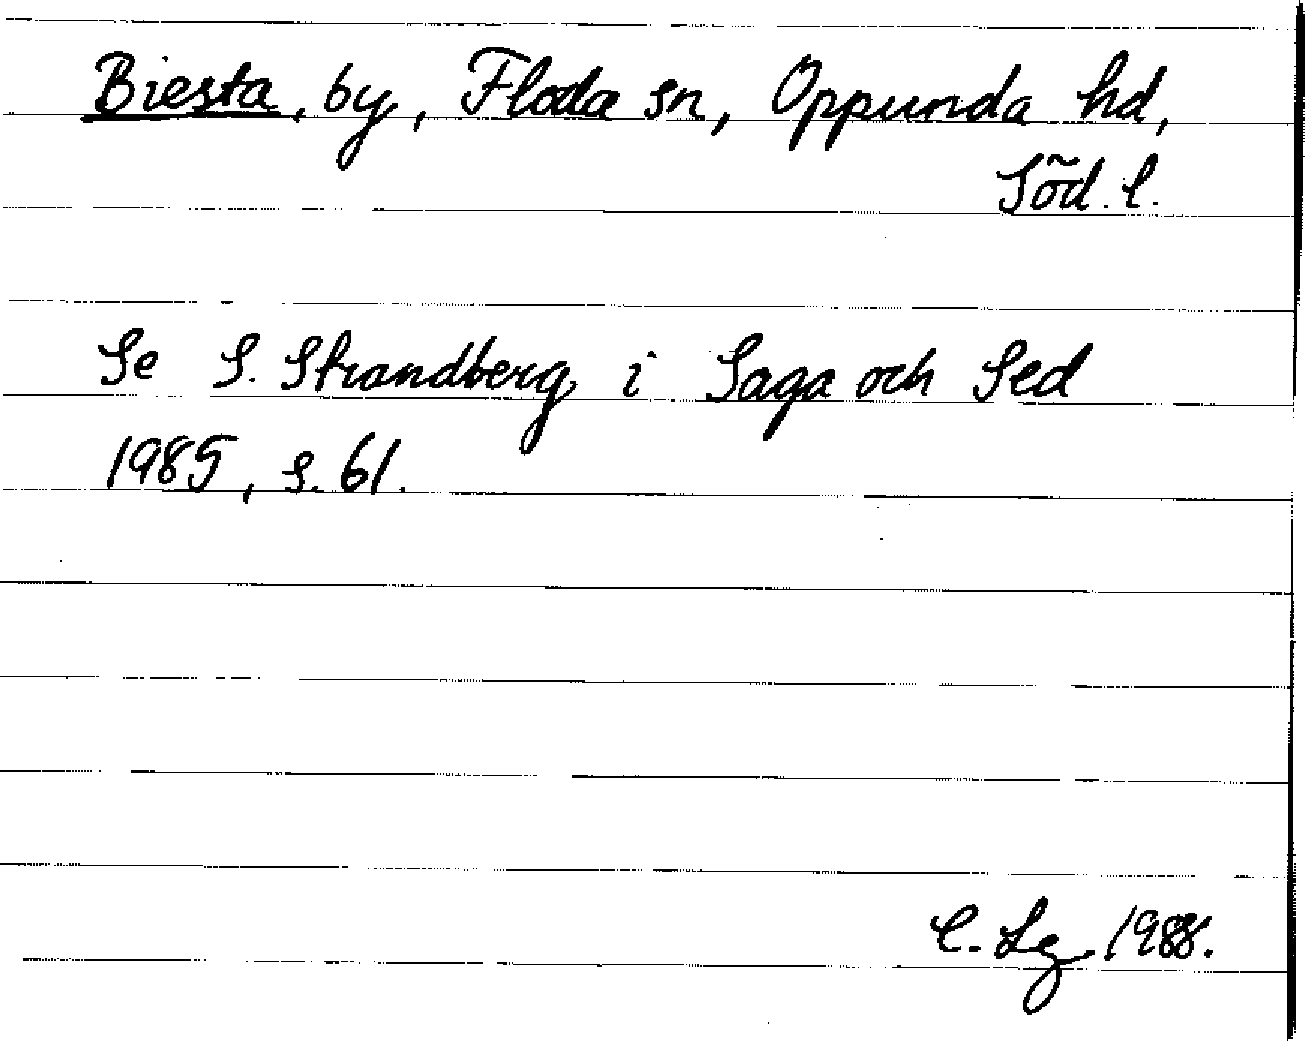 Biesta, by, Floda sn, Oppunda hd,
Söd. l.
Se S. Strandberg i Saga och Sed
1985, s. 61.
C. Lg 1988.